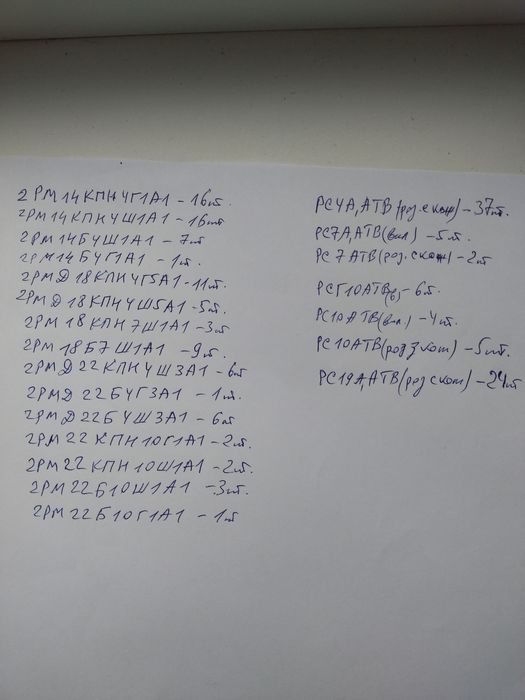 2РМ14КПН4Г1А1 - 16шт.
2РМ14КПН4Ш1А1 - 16шт
2РМ14Б4Ш1А1 - 7шт
2РМ14Б4Г1А1 - 1шт.
2РМД18КПН4Г5А1 - 11шт.
2РМД18КПН4Ш5А1 - 5шт.
2РМ18КПН7Ш1А1 - 3шт
2РМ18Б7Ш1А1 - 9шт.
2РМД22КПН4Ш3А1 - 6шт
2РМД22Б4Г3А1 - 1шт.
2РМД22Б4Ш3А1 - 6шт
2РМ22КПН10Г1А1 - 2шт.
2РМ22КПН10Ш1А1 - 2шт.
2РМ22Б10Ш1А1 - 3шт.
2РМ22Б10Г1А1 - 1шт
РС4А,АТВ(роз.с кож) - 37шт.
РС7А,АТВ(вил) - 5шт.
РС7АТВ(роз.с кож) - 2шт
РСГ10АТВ(в) - 6шт.
РС10АТВ(вил.) - 4шт.
РС10АТВ(роз з кож) - 5шт.
РС19А,АТВ(роз с кож) - 24шт